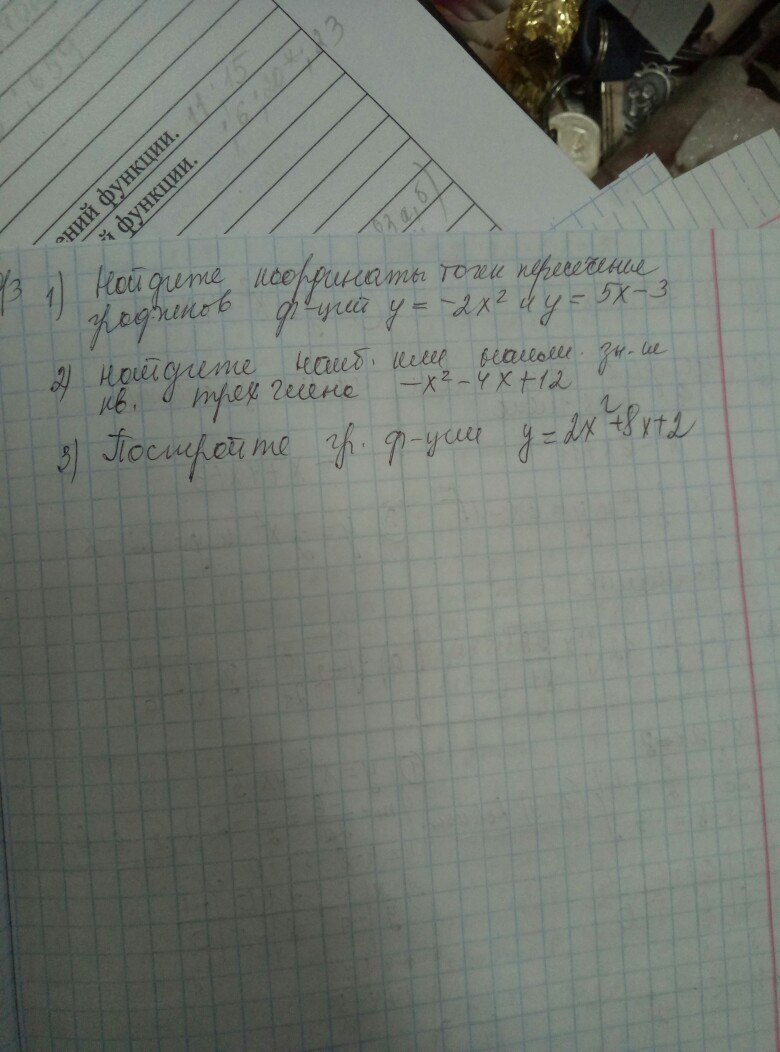 11:15
ений функции.
й функции.
1) Найдите координаты точки пересечение
графиков ф-ций y = -2x² и y = 5x-3
2) Найдите наиб. или наим. зн-ие
кв. трехчлена -x²-4x+12
3) Постройте гр. ф-ции y=2x²+8x+2